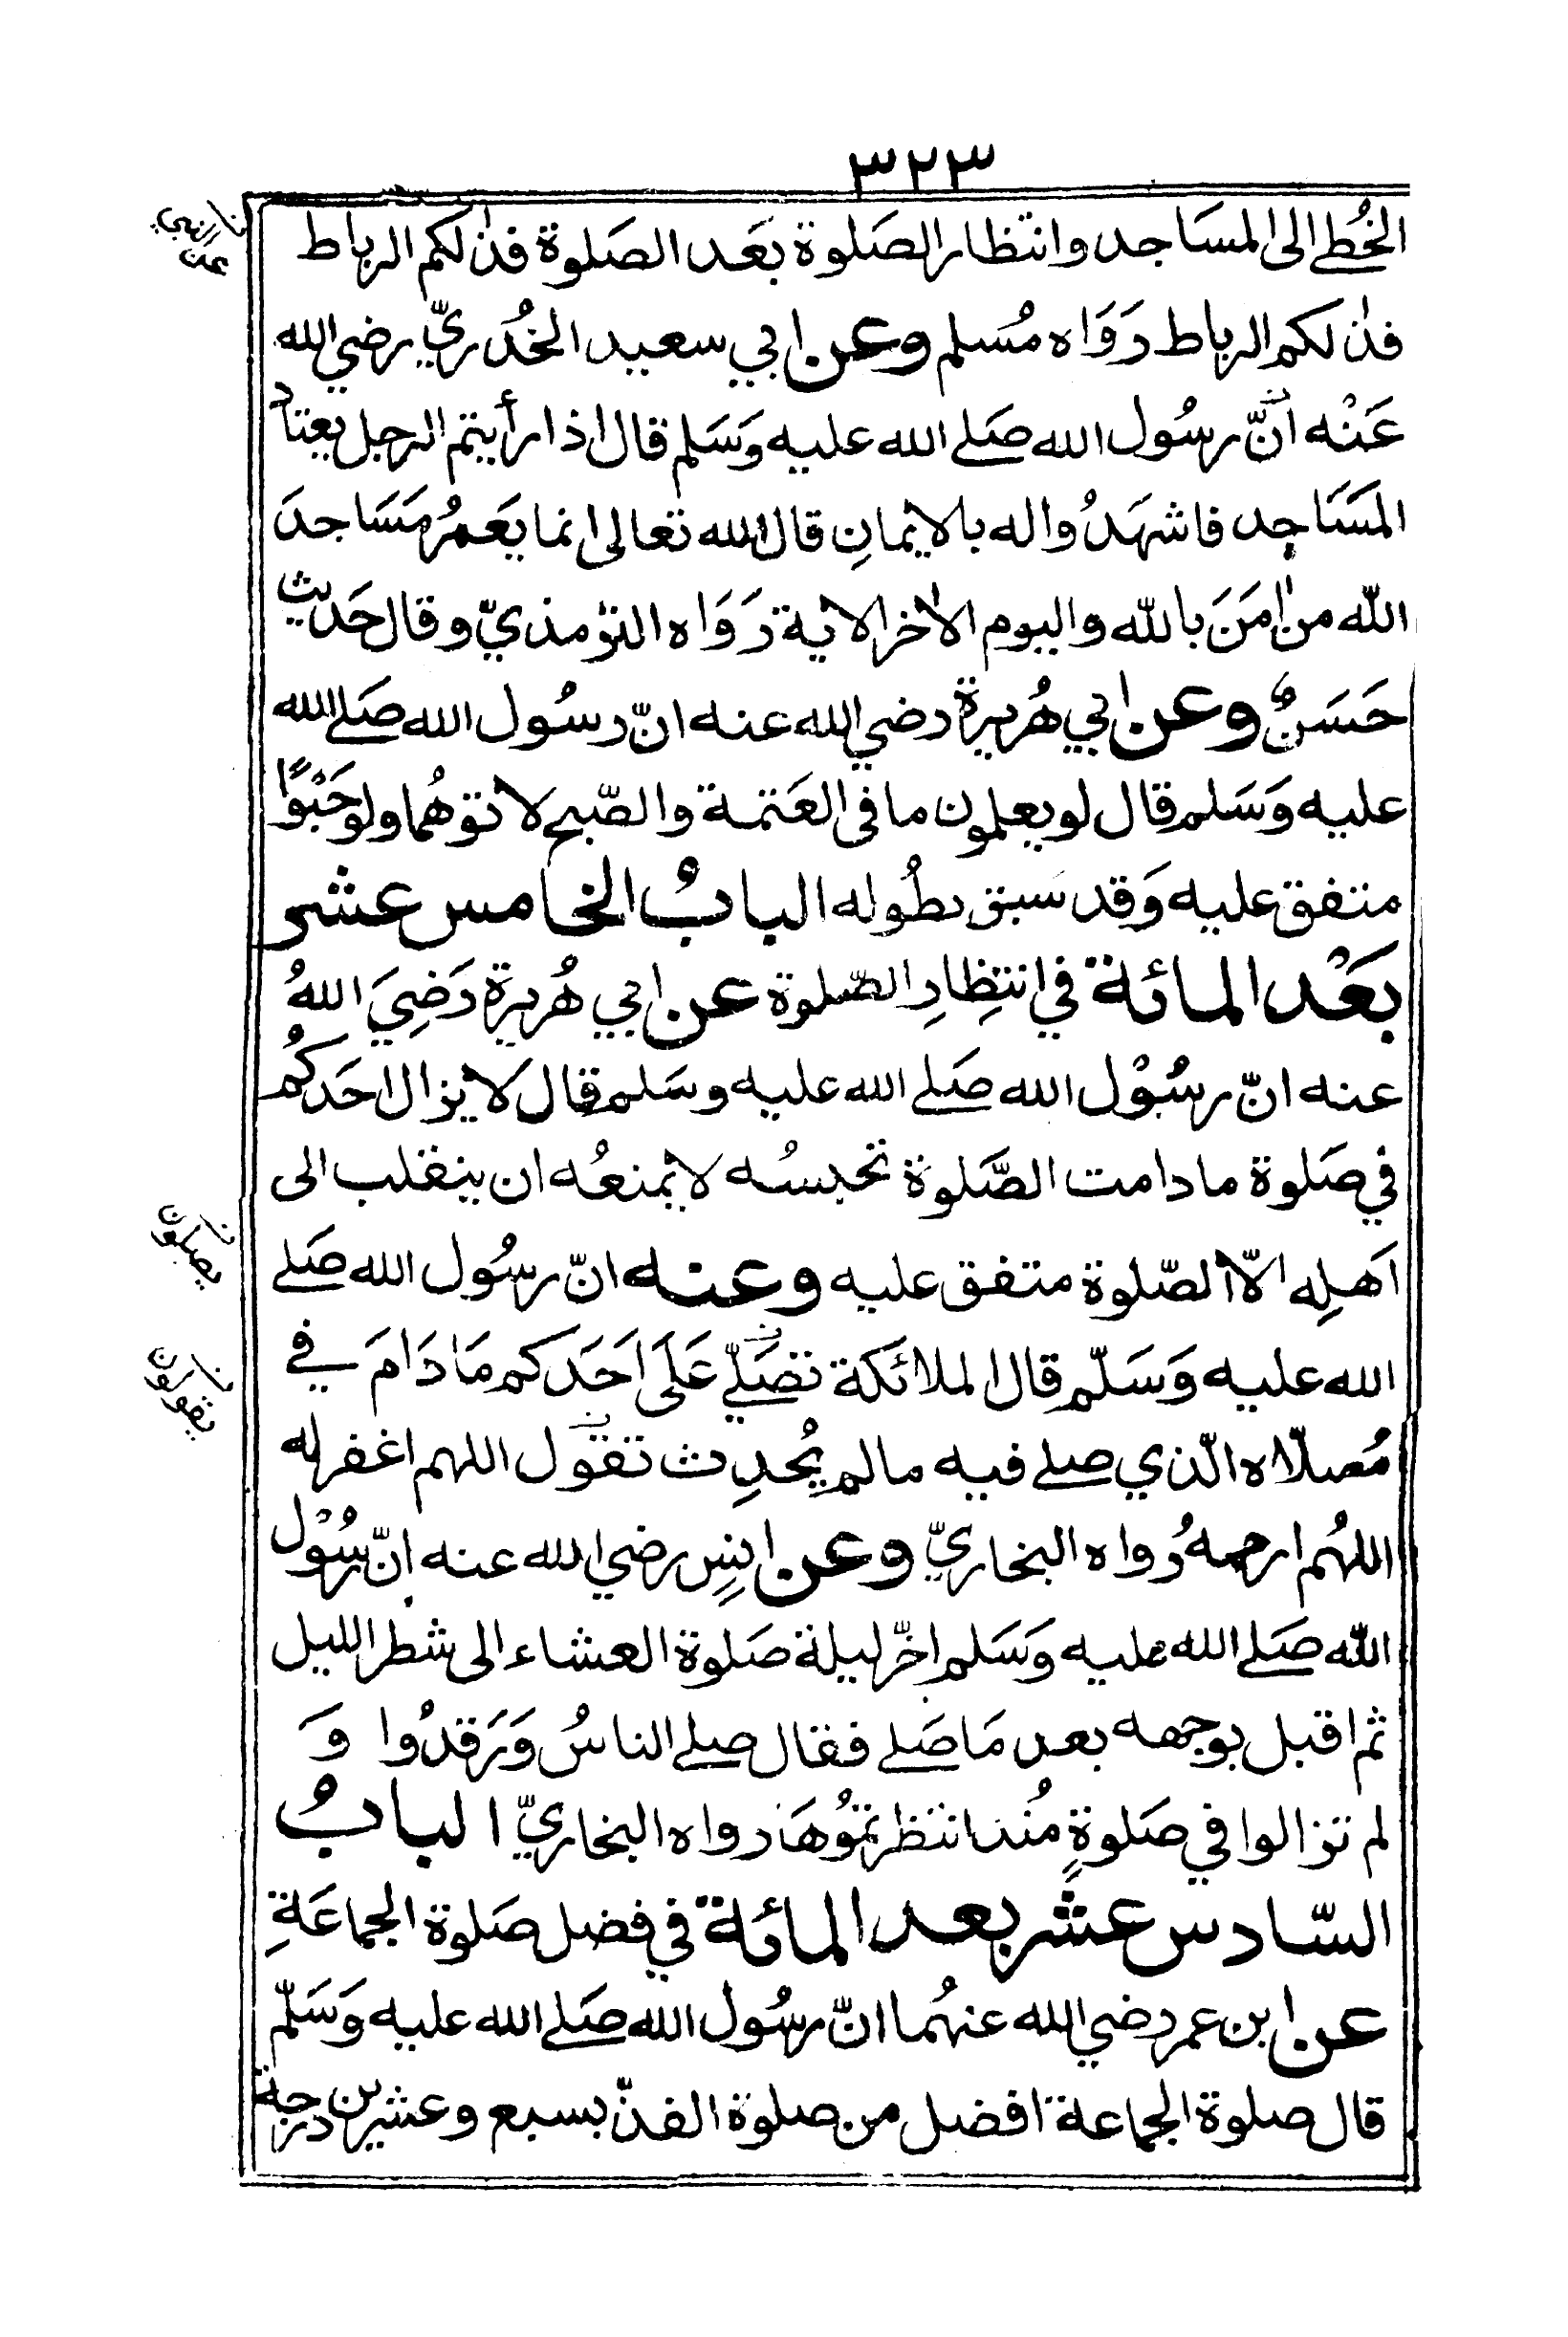 ٣٢٣
الخُطٰى الى المسَاجد وانتظار الصَلوة بعَد الصَلوة فذٰلكم الرباط
فذٰلكم الرباط رَوَاه مُسلم وعن ابي سعيد الخُدريّ رضي الله
عَنْه انّ رسُول الله صَلى الله عليه وَسَلم قال اذا رأيتم الرجل يعتاد
المَسَاجِد فاشهَدُوا له بالايمانِ قال الله تعالى انما يَعمرُ مَسَاجدَ
الله من اٰمَنَ بالله واليوم الاٰخر الاية رَوَاه الترمذيّ وقال حَديث
حَسَنٌ وعن ابي هُريرة رضي الله عنه انّ رسُول الله صَلى الله
عليه وَسَلم قال لو يعلمون ما فى العَتمة والصّبح لاتوهُما ولو حَبْوًا
متفق عليه وَقد سَبق بطُوله البابُ الخامس عشر
بَعْد المائة في انتِظارِ الصّلوة عن ابي هُريرة رَضِيَ اللهُ
عنه انّ رسُوْل الله صَلى الله عليه وسَلم قال لا يزال احَدكُم
في صَلوة ما دامت الصَّلوة تحبسُه لا يمنعُه ان ينقلب الى
اَهلِه الّا الصّلوة متفق عليه وعنه انّ رسُول الله صَلى
الله عليه وَسَلّم قال الملائكة تصَلّي عَلَى اَحَدكم مَا دَامَ في
مُصلّاه الّذي صلى فيه ما لم يُحدِث تقول اللهم اغفر له
اللهُم ارحمهُ رواه البخاريّ وعن انسٍ رضي الله عنه انّ رسُوْل
الله صَلى الله عليه وَسَلم اخّر ليلة صَلوة العشاء الى شطر الليل
ثم اقبل بوجهه بعد مَا صَلى فقال صلى الناسُ وَرَقدُوا وَ
لم تزالوا في صَلوةٍ مُنذ انتظرتموُهَا رواه البخاريّ البابُ
السّادس عشر بعد المائة في فضل صَلوة الجماعَةِ
عن ابن عمر رضي الله عنهُما انّ رسُول الله صَلى الله عليه وَسَلّم
قال صلوة الجماعة افضل من صلوة الفذّ بسبع وعشرين درجة
عن النبي
يصلون
يقولون